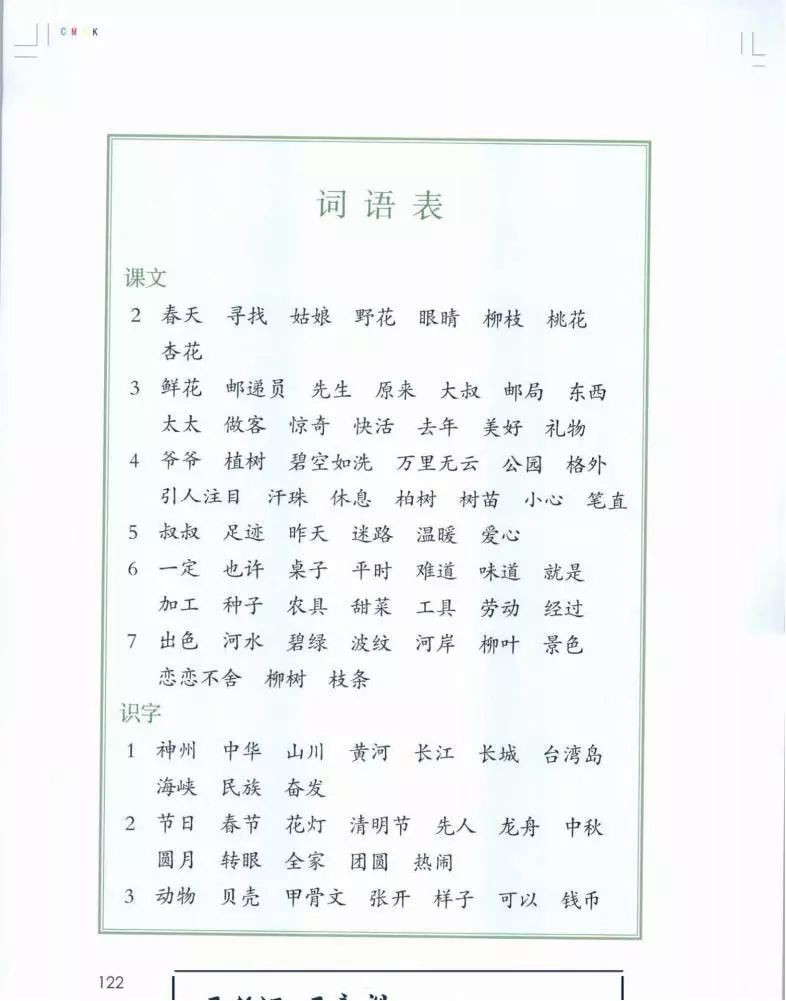 CMYK
词语表
课文
2 春天 寻找 姑娘 野花 眼睛 柳枝 桃花
杏花
3 鲜花 邮递员 先生 原来 大叔 邮局 东西
太太 做客 惊奇 快活 去年 美好 礼物
4 爷爷 植树 碧空如洗 万里无云 公园 格外
引人注目 汗珠 休息 柏树 树苗 小心 笔直
5 叔叔 足迹 昨天 迷路 温暖 爱心
6 一定 也许 桌子 平时 难道 味道 就是
加工 种子 农具 甜菜 工具 劳动 经过
7 出色 河水 碧绿 波纹 河岸 柳叶 景色
恋恋不舍 柳树 枝条
识字
1 神州 中华 山川 黄河 长江 长城 台湾岛
海峡 民族 奋发
2 节日 春节 花灯 清明节 先人 龙舟 中秋
圆月 转眼 全家 团圆 热闹
3 动物 贝壳 甲骨文 张开 样子 可以 钱币
122